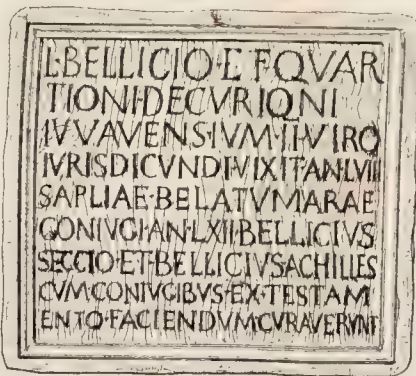 L·BELLICIO·L·F·QVAR
TIONI·DECVRIONI
IVVAVENSIVM·II·VIRO
IVRISDICVNDI·VIXIT·AN·LVIII
SAPLIAE·BELATVMARAE
CONIVGI·AN·LXII·BELLICIVS
SECCIO·ET·BELLICIVS·ACHILLES
CVM·CONIVGIBVS·EX·TESTAM
ENTO·FACIENDVM·CVRAVERVNT